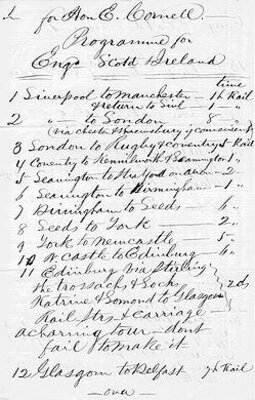 for Hon E. Cornell.
Programme for
Engd Scotd & Ireland
time
1 Liverpool to Manchester — 1 h Rail
& return to Livl — 1 "
2 " — to London 8 — "
(via Chester & Shrewsbury if convenient)
3 London to Rugby & Coventry 3 Rail
4 Coventry to Kennilworth & Leamington 1 "
5 Leamington to Stratford on Avon — 2 —
6 Leamington to Birmingham — 1 "
7 Birmingham to Leeds — 6 "
8 Leeds to York — 2 "
9 York to Newcastle — 5 "
10 N castle to Edinburg — 6 "
11 Edinburg via Stirling,
the Trossachs & Lochs
Katrine & Lomond to Glasgow 2 ds
Rail Strs & Carriage —
a charming tour — dont
fail to make it
12 Glasgow to Belfast 7 h Rail
— over —